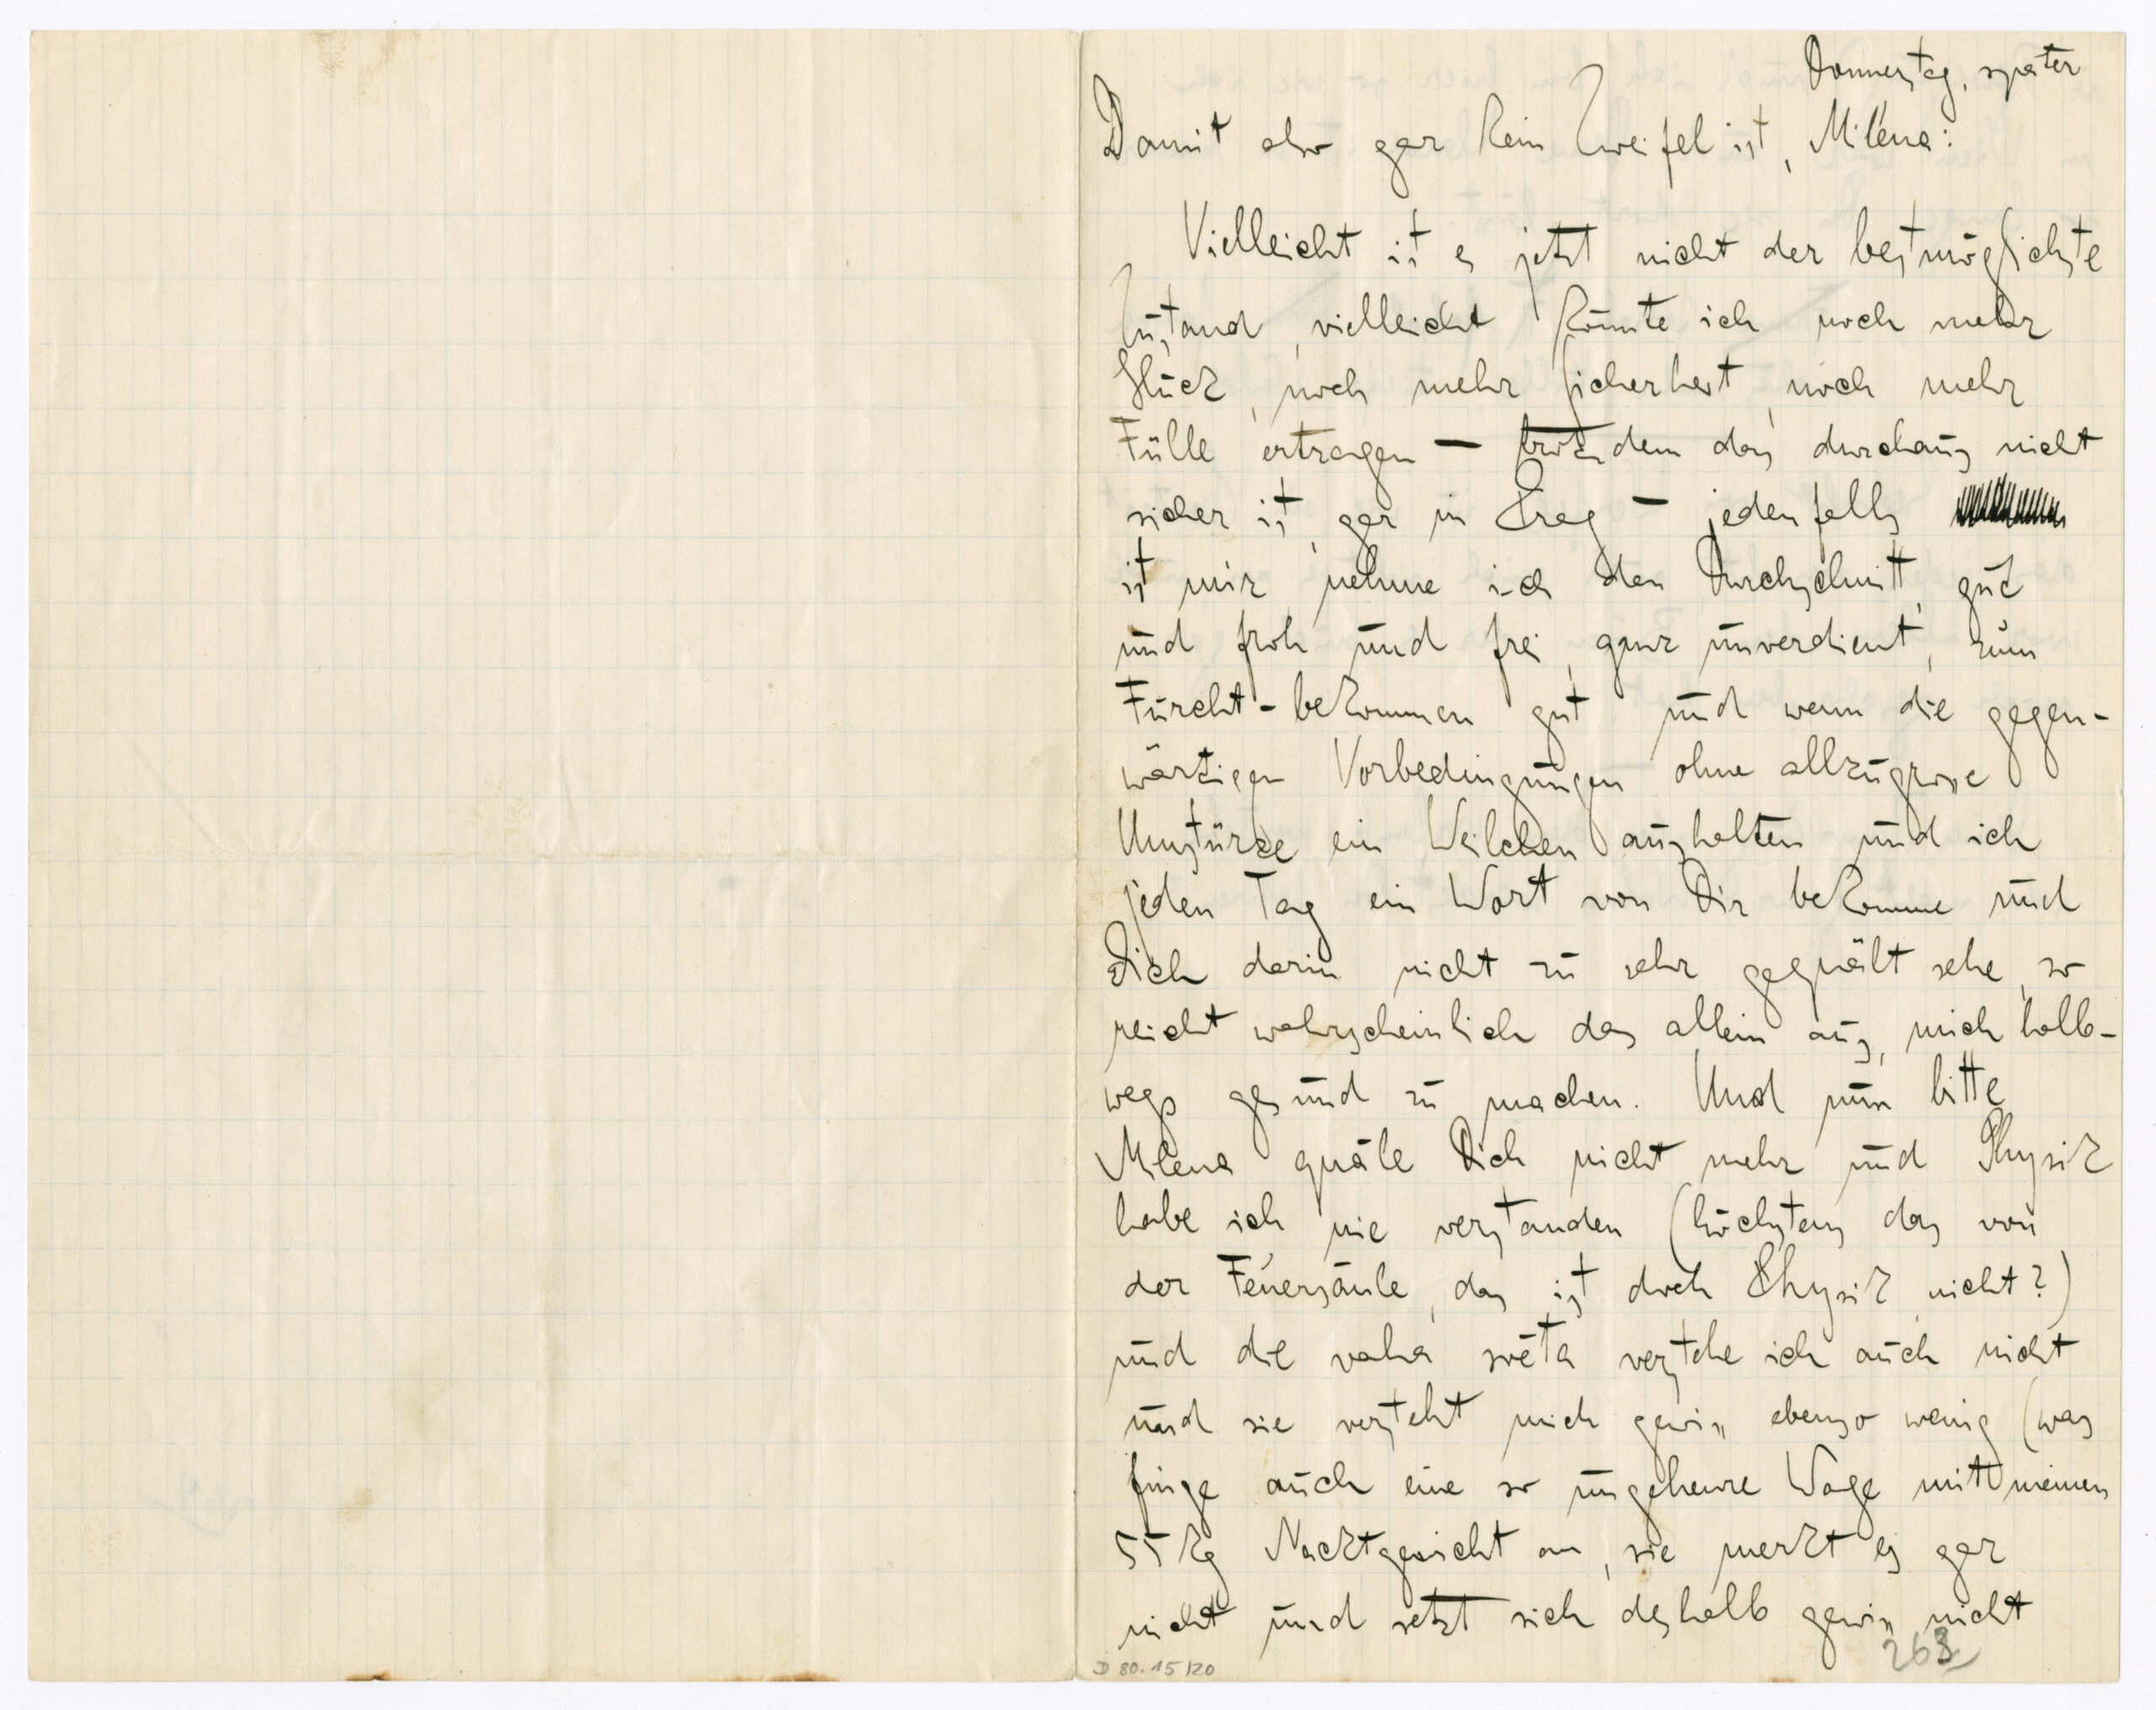 Donnerstag, später
Damit also gar kein Zweifel ist, Milena:
Vielleicht ist es jetzt nicht der bestmöglichste
Zustand, vielleicht könnte ich noch mehr
Glück, noch mehr Sicherheit, noch mehr
Fülle ertragen – trotzdem das durchaus nicht
sicher ist, gar in Prag – jedenfalls
ist mir, nehme ich den Durchschnitt, gut
und froh und frei, ganz unverdient, zum
Furcht-bekommen gut und wenn die gegen-
wärtigen Vorbedingungen ohne allzugrosse
Umstürze ein Weilchen aushalten und ich
jeden Tag ein Wort von Dir bekomme und
Dich darin nicht zu sehr gequält sehe, so
reicht wahrscheinlich das allein aus, mich halb-
wegs gesund zu machen. Und nun bitte
Milena quäle Dich nicht mehr und Physik
habe ich nie verstanden (höchstens das von
der Feuersäule, das ist doch Physik, nicht?)
und die vaha světa verstehe ich auch nicht
und sie versteht mich gewiss ebenso wenig (was
finge auch eine so ungeheure Wage mit meinen
55 kg Nacktgewicht an, sie merkt es gar
nicht und setzt sich deshalb gewiss nicht
D 80.15/20
263